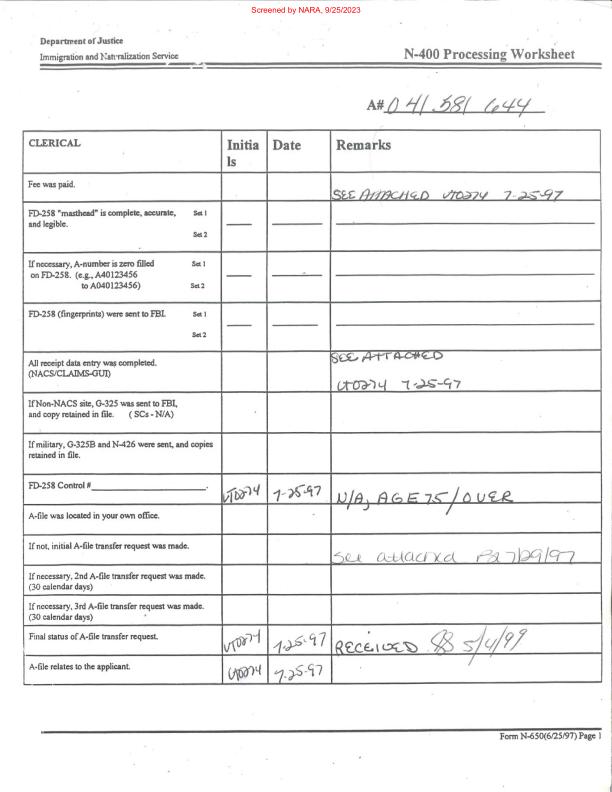 Screened by NARA, 9/25/2023
Department of Justice
Immigration and Naturalization Service
N-400 Processing Worksheet
A# 041 581 644
CLERICAL
Initia
ls
Date
Remarks
Fee was paid.
SEE ATTACHED VT0274 7-25-97
FD-258 "masthead" is complete, accurate, Set 1
and legible.
Set 2
If necessary, A-number is zero filled Set 1
on FD-258. (e.g., A40123456
to A040123456) Set 2
FD-258 (fingerprints) were sent to FBI. Set 1
Set 2
All receipt data entry was completed.
(NACS/CLAIMS-GUI)
SEE ATTACHED
VT0274 7-25-97
If Non-NACS site, G-325 was sent to FBI,
and copy retained in file. ( SCs - N/A)
If military, G-325B and N-426 were sent, and copies
retained in file.
FD-258 Control #
VT0274 7-25-97 N/A, AGE 75/OVER
A-file was located in your own office.
If not, initial A-file transfer request was made.
See attached 7/29/97
If necessary, 2nd A-file transfer request was made.
(30 calendar days)
If necessary, 3rd A-file transfer request was made.
(30 calendar days)
Final status of A-file transfer request.
VT0274 7-25-97 RECEIVED 5/4/99
A-file relates to the applicant.
VT0274 7-25-97
Form N-650(6/25/97) Page 1